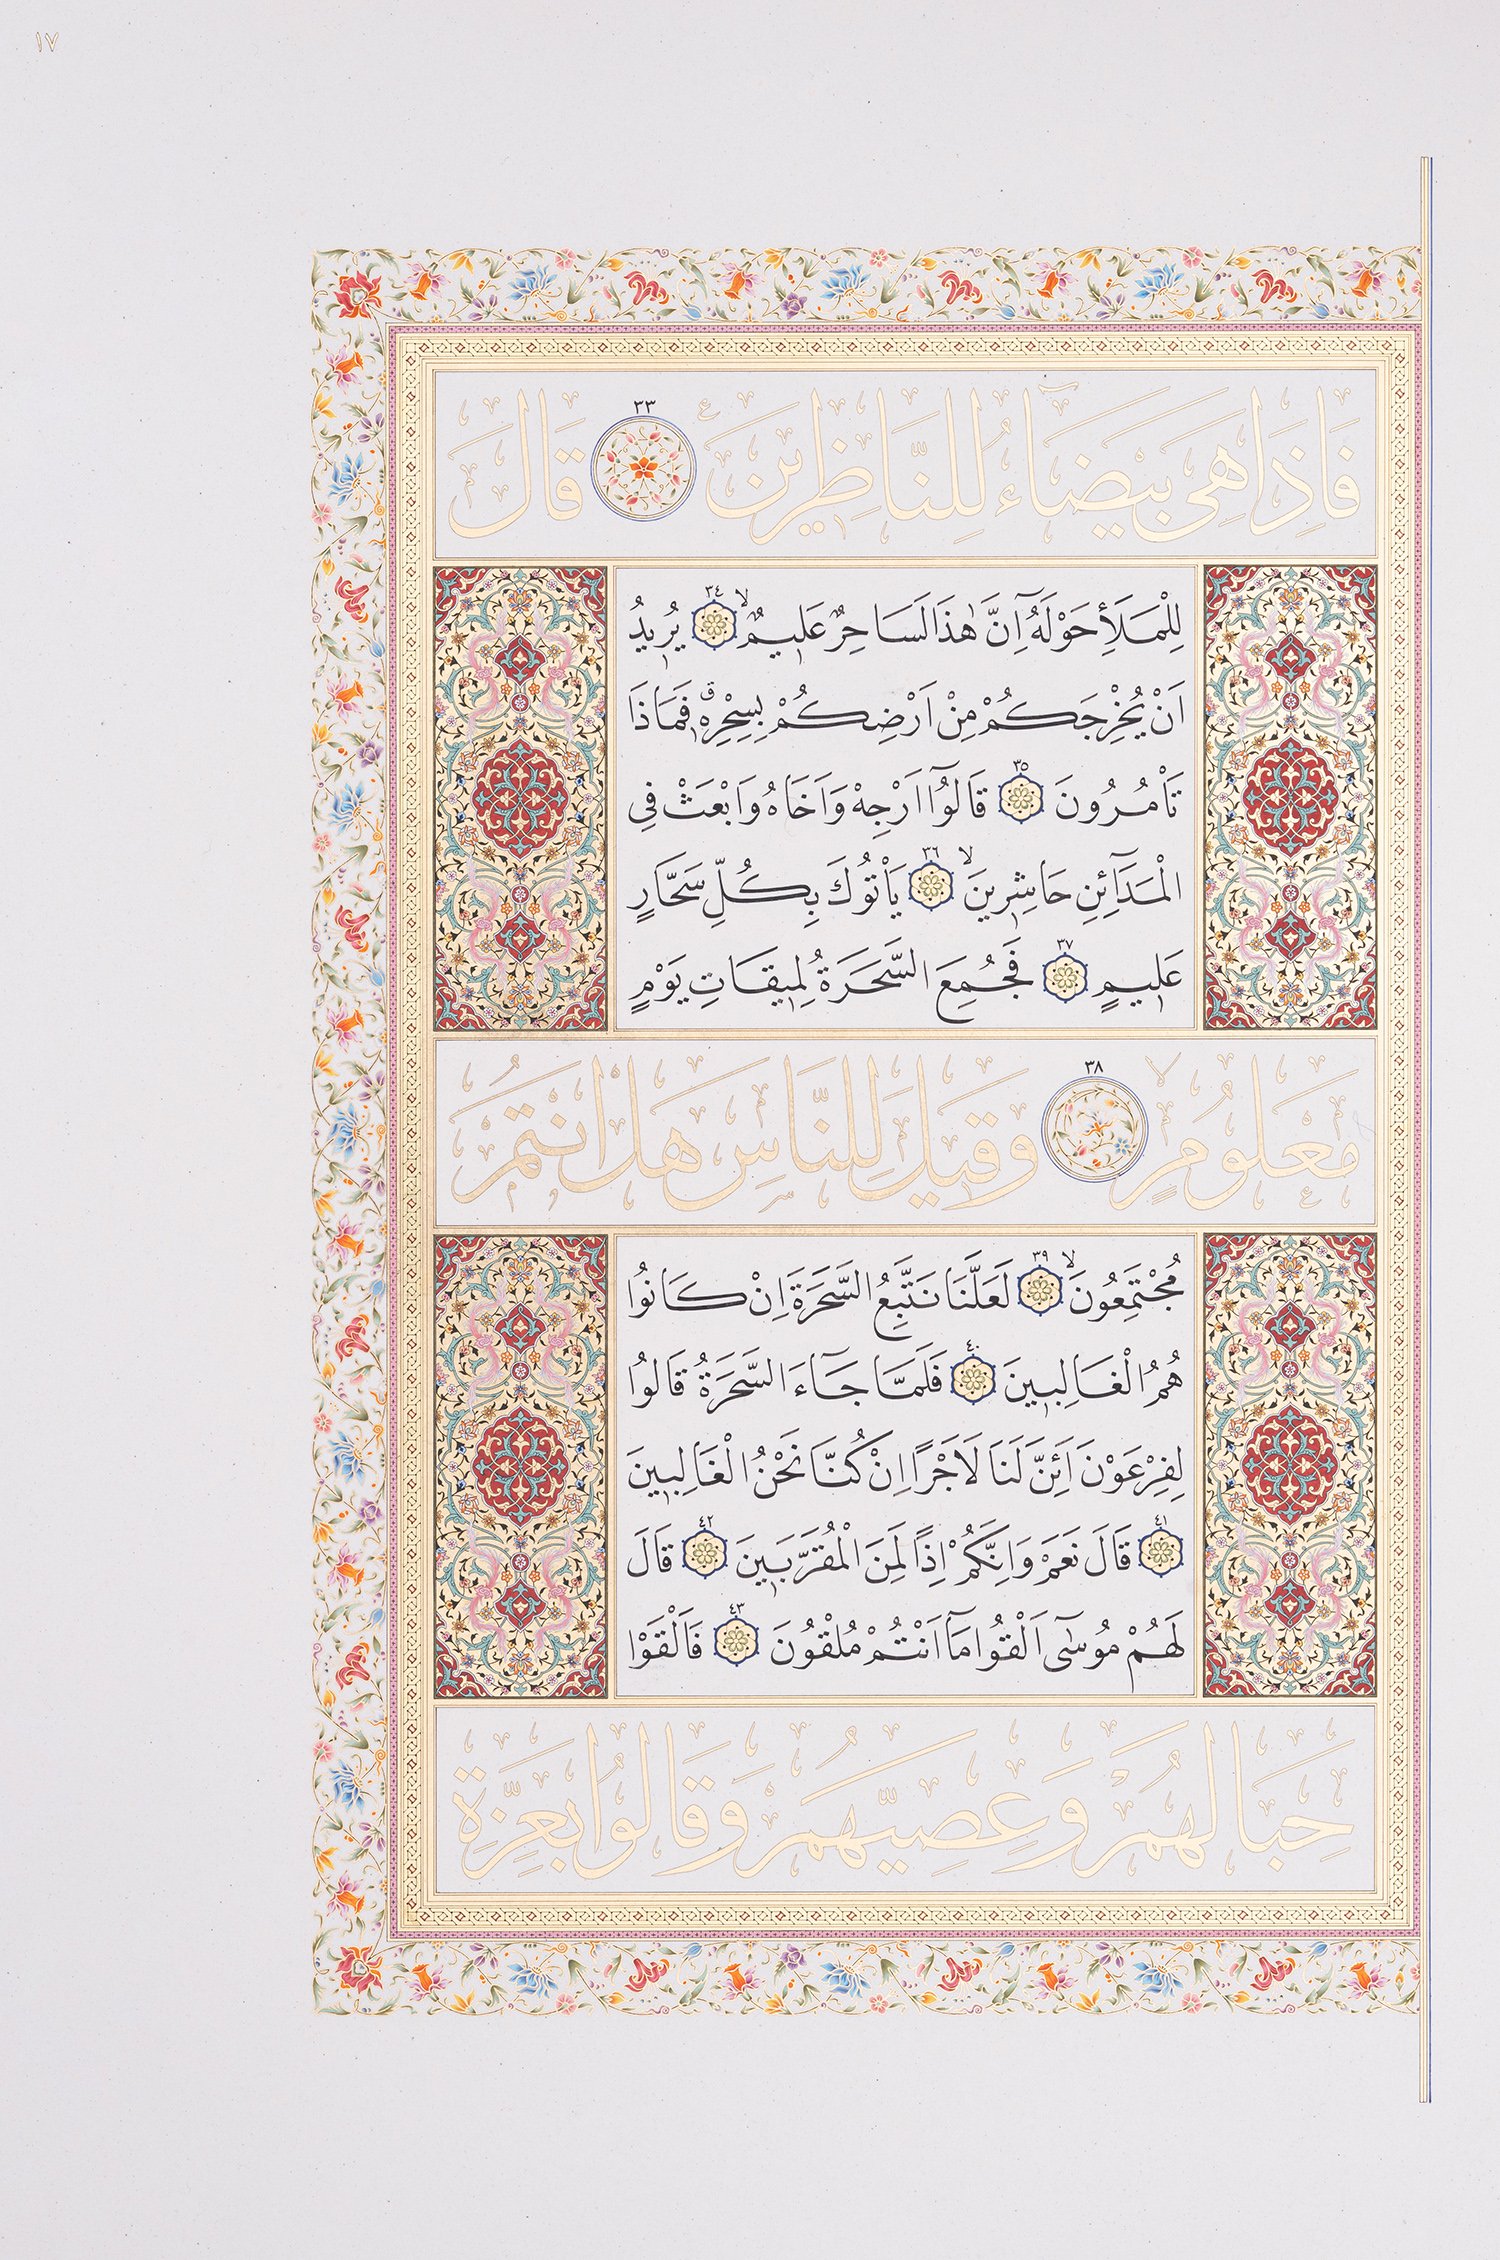 ١٧
فَاِذَا هِىَ بَيْضَٓاءُ لِلنَّاظِرٖينَ ٣٣ قَالَ
لِلْمَلَأِ حَوْلَهُٓ اِنَّ هٰذَا لَسَاحِرٌ عَلٖيمٌۙ ٣٤ يُرٖيدُ
اَنْ يُخْرِجَكُمْ مِنْ اَرْضِكُمْ بِسِحْرِهٖۗ فَمَاذَا
تَاْمُرُونَ ٣٥ قَالُٓوا اَرْجِهْ وَاَخَاهُ وَابْعَثْ فِى
الْمَدَٓائِنِ حَاشِرٖينَۙ ٣٦ يَاْتُوكَ بِكُلِّ سَحَّارٍ
عَلٖيمٍ ٣٧ فَجُمِعَ السَّحَرَةُ لِمٖيقَاتِ يَوْمٍ
مَعْلُومٍۙ ٣٨ وَقٖيلَ لِلنَّاسِ هَلْ اَنْتُمْ
مُجْتَمِعُونَۙ ٣٩ لَعَلَّنَا نَتَّبِعُ السَّحَرَةَ اِنْ كَانُوا
هُمُ الْغَالِبٖينَ ٤٠ فَلَمَّا جَٓاءَ السَّحَرَةُ قَالُوا
لِفِرْعَوْنَ اَئِنَّ لَنَا لَاَجْرًا اِنْ كُنَّا نَحْنُ الْغَالِبٖينَ
٤١ قَالَ نَعَمْ وَاِنَّكُمْ اِذًا لَمِنَ الْمُقَرَّبٖينَ ٤٢ قَالَ
لَهُمْ مُوسٰٓى اَلْقُوا مَٓا اَنْتُمْ مُلْقُونَ ٤٣ فَاَلْقَوْا
حِبَالَهُمْ وَعِصِيَّهُمْ وَقَالُوا بِعِزَّةِ